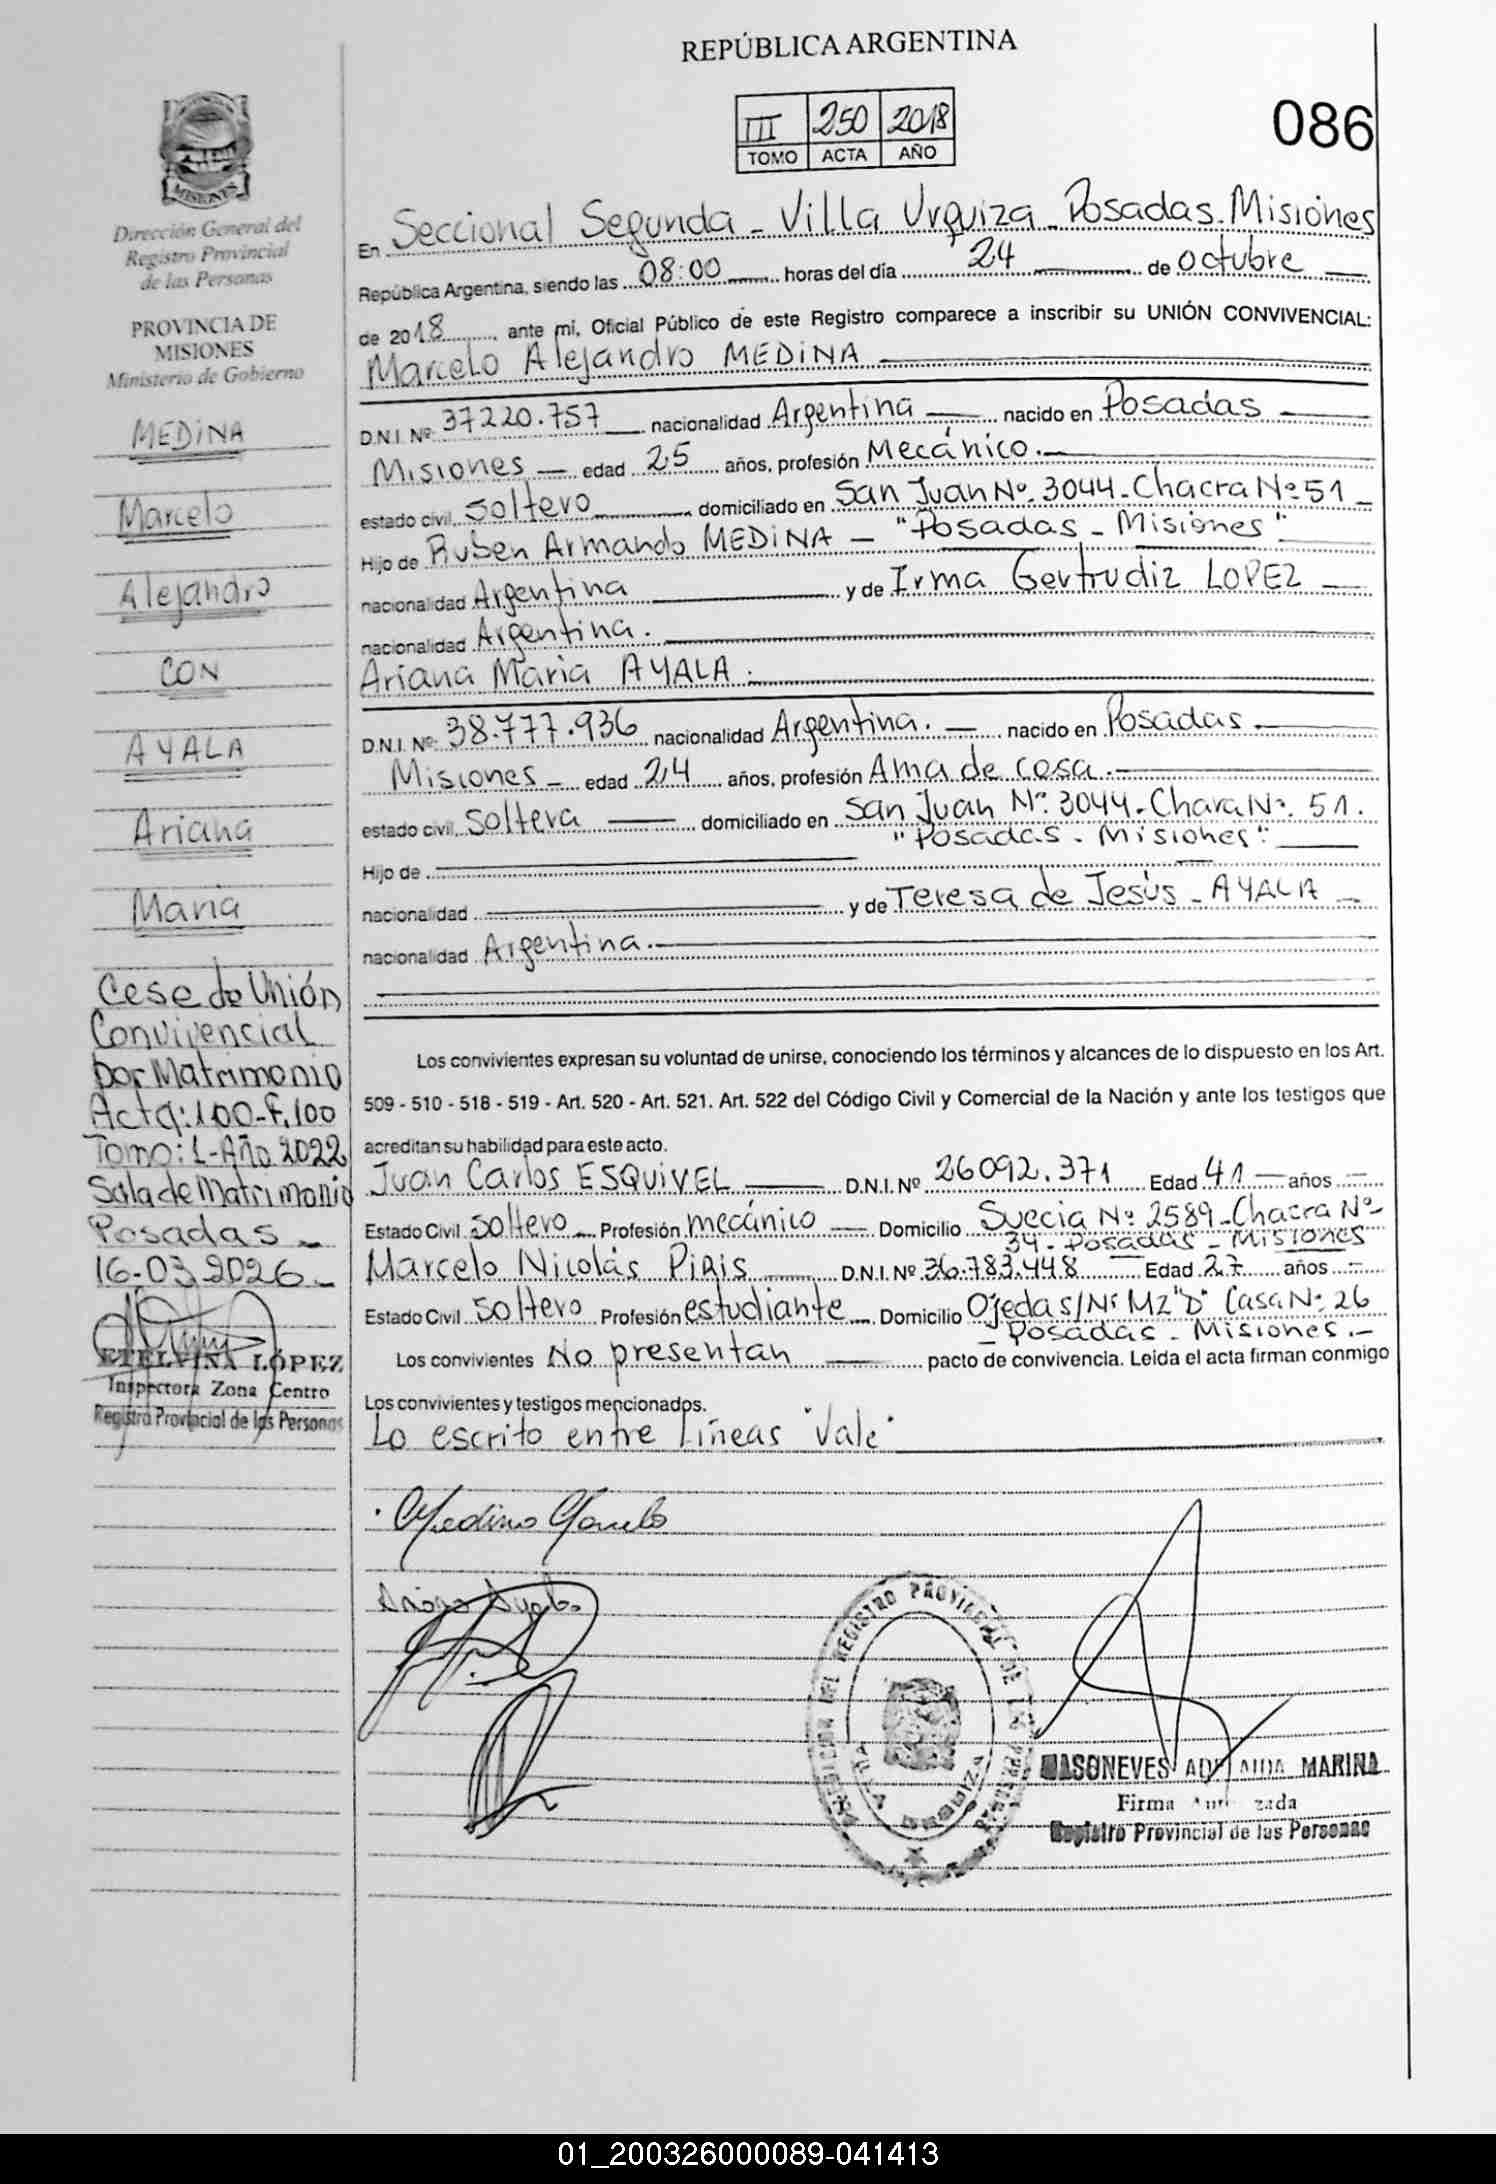 REPÚBLICA ARGENTINA
III 250 2018
TOMO ACTA AÑO
086
MISIONES
Dirección General del
Registro Provincial
de las Personas
PROVINCIA DE
MISIONES
Ministerio de Gobierno
MEDINA
Marcelo
Alejandro
CON
AYALA
Ariana
Maria
Cese de Unión
Convivencial
por Matrimonio
Acta: 100-F. 100
Tomo: 1-Año 2022
Sala de Matrimonio
Posadas
16-03 2026
ETELVINA LÓPEZ
Inspectora Zona Centro
Registro Provincial de las Personas
En Seccional Segunda - Villa Urquiza - Posadas. Misiones
República Argentina, siendo las 08:00 horas del día 24 de octubre
de 2018, ante mi, Oficial Público de este Registro comparece a inscribir su UNIÓN CONVIVENCIAL:
Marcelo Alejandro MEDINA
D.N.I. Nº 37220.757 nacionalidad Argentina nacido en Posadas
Misiones edad 25 años, profesión Mecánico.
estado civil soltero domiciliado en San Juan Nº 3044 - Chacra Nº 51
Hijo de Ruben Armando MEDINA - "Posadas - Misiones"
nacionalidad Argentina y de Irma Gertrudiz LOPEZ
nacionalidad Argentina.
Ariana Maria AYALA.
D.N.I. Nº 38.777.936 nacionalidad Argentina. nacido en Posadas
Misiones edad 24 años, profesión Ama de cosa.
estado civil soltera domiciliado en San Juan Nº 3044 - Chara Nº 51.
"Posadas - Misiones"
Hijo de
nacionalidad y de Teresa de Jesús - AYALA
nacionalidad Argentina.
Los convivientes expresan su voluntad de unirse, conociendo los términos y alcances de lo dispuesto en los Art.
509 - 510 - 518 - 519 - Art. 520 - Art. 521. Art. 522 del Código Civil y Comercial de la Nación y ante los testigos que
acreditan su habilidad para este acto.
Juan Carlos ESQUIVEL D.N.I. Nº 26092.371 Edad 41 años
Estado Civil soltero Profesión mecánico Domicilio Suecia Nº 2589 - Chacra Nº
34 - Posadas - Misiones
Marcelo Nicolás PIRIS D.N.I. Nº 36.783.448 Edad 27 años
Estado Civil soltero Profesión estudiante Domicilio Ojeda s/Nº MZ "D" Casa Nº 26
- Posadas - Misiones.-
Los convivientes No presentan pacto de convivencia. Leida el acta firman conmigo
Los convivientes y testigos mencionados.
Lo escrito entre líneas "Vale"
Medina Marcelo
Ariana Ayala
REGISTRO PROVINCIAL DE LAS PERSONAS
MARINA
Firma
Registro Provincial de las Personas
01_200326000089-041413